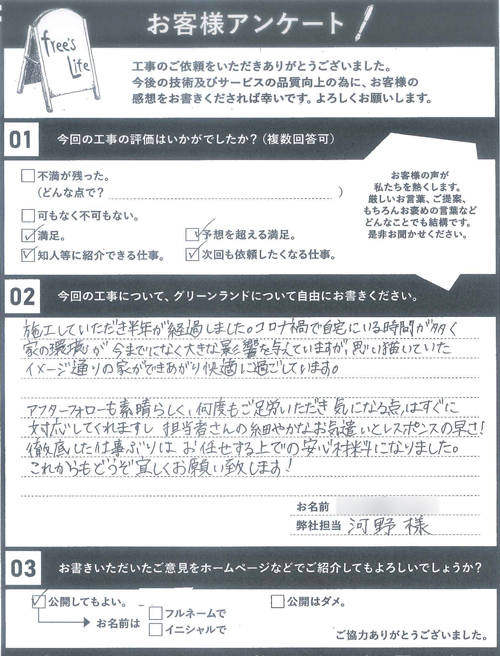 お客様アンケート
free's
Life
工事のご依頼をいただきありがとうございました。
今後の技術及びサービスの品質向上の為に、お客様の
感想をお書きくだされば幸いです。よろしくお願いします。
01 今回の工事の評価はいかがでしたか?(複数回答可)
不満が残った。
(どんな点で? )
可もなく不可もない。
満足。 予想を超える満足。
知人等に紹介できる仕事。 次回も依頼したくなる仕事。
お客様の声が
私たちを熱くします。
厳しいお言葉、ご提案、
もちろんお褒めの言葉など
どんなことでも結構です。
是非お聞かせください。
02 今回の工事について、グリーンランドについて自由にお書きください。
施工していただき半年が経過しました。コロナ禍で自宅にいる時間が多く
家の環境が今までになく大きな影響を与えていますが、思い描いていた
イメージ通りの家ができあがり快適に過ごしています。
アフターフォローも素晴らしく、何度もご足労いただき気になる点はすぐに
対応してくれますし担当者さんの細やかなお気遣いとレスポンスの早さ!
徹底した仕事ぶりはお任せする上での安心材料になりました。
これからもどうぞ宜しくお願い致します!
お名前
弊社担当 河野様
03 お書きいただいたご意見をホームページなどでご紹介してもよろしいでしょうか?
公開してもよい。 公開はダメ。
お名前は フルネームで
イニシャルで
ご協力ありがとうございました。